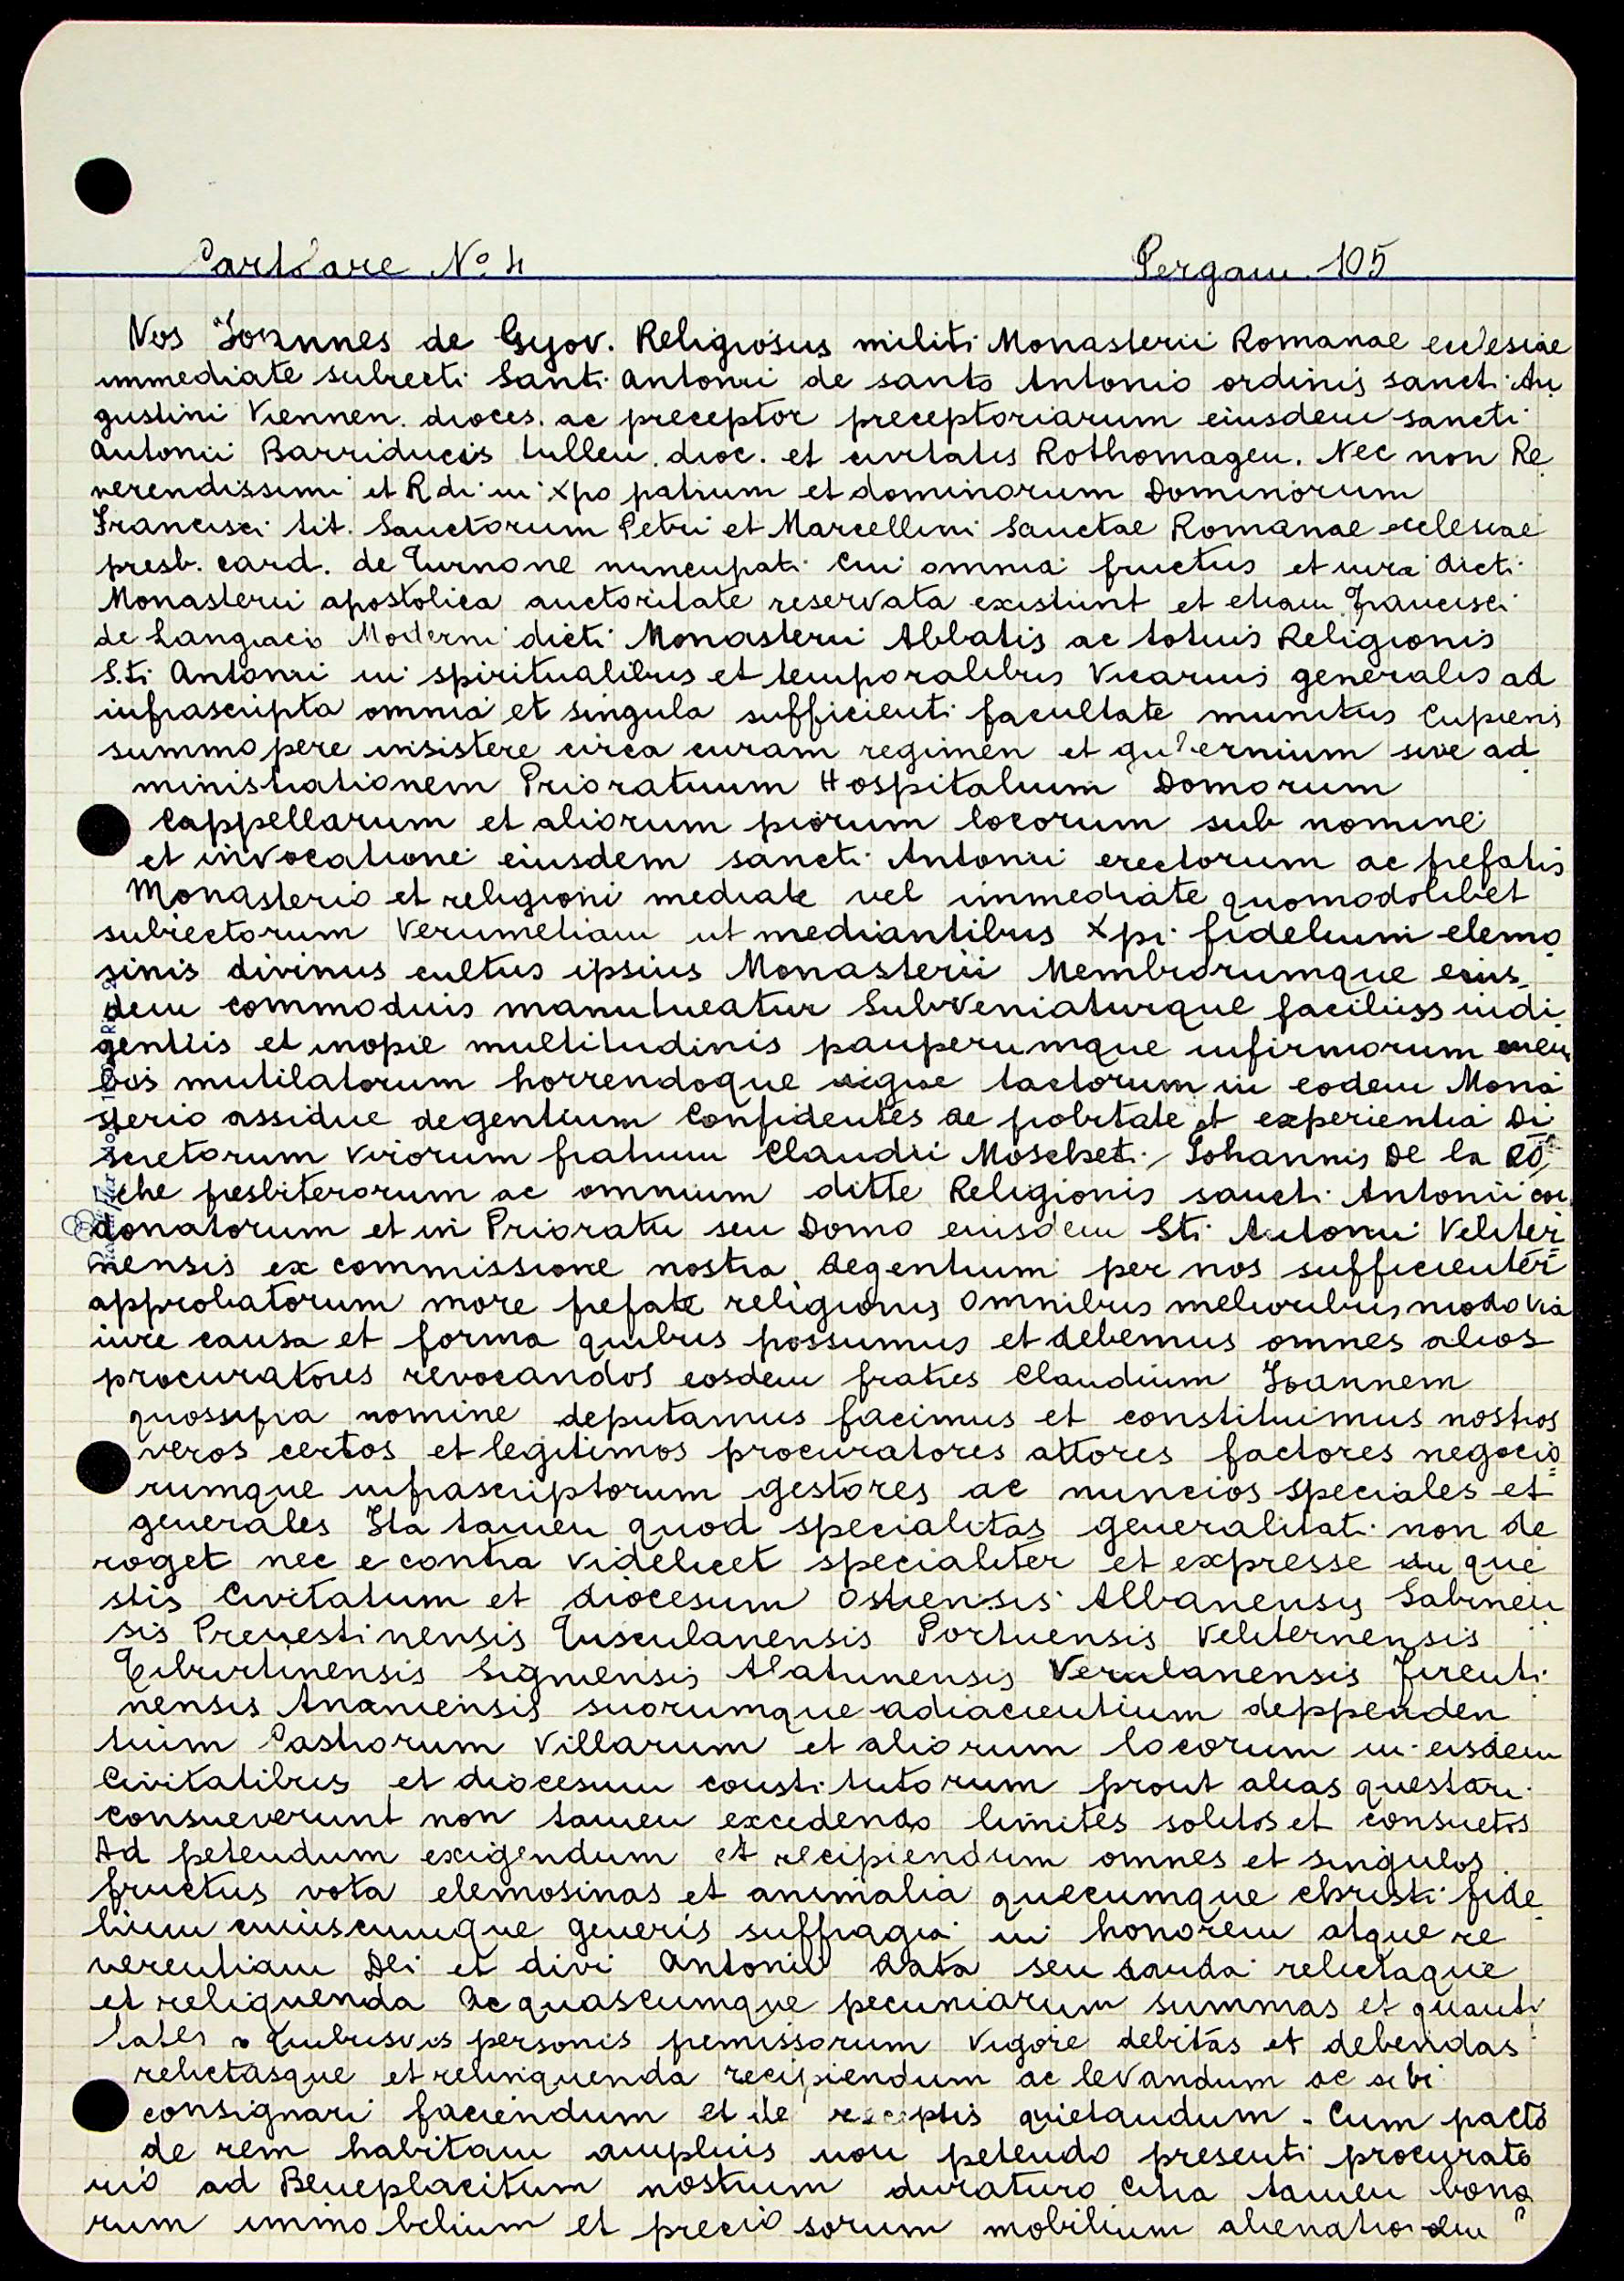 Partilare No 4 Pergam. 105
Nos Joannes de Gyov. Religiosus militi Monasterii Romanae ecclesiae
immediate subiecti Santi Antonii de santo Antonio ordinis sancti Au
gustini Viennen. dioces. ac preceptor preceptoriarum eiusdem sancti
Antonii Barriducis tullen. dioc. et civitatis Rothomagen. Nec non Re
verendissimi et Rdi in Xpo patrum et dominorum Dominorum
Francisci tit. Sanctorum Petri et Marcellini Sanctae Romanae ecclesiae
presb. card. de Turnone nuncupati cui omnia fructus et iura dicti
Monasterii apostolica auctoritate reservata existunt et etiam Francisci
de Langiacio Moderni dicti Monasterii Abbatis ac totius Religionis
S.ti Antonii in spiritualibus et temporalibus Vicarius generalis ad
infrascripta omnia et singula sufficienti facultate munitus Cupiens
summopere insistere circa curam regimen et gubernium sive ad
ministrationem Prioratuum Hospitalium Domorum
Cappellarum et aliorum piorum locorum sub nomine
et invocatione eiusdem sancti Antonii erectorum ac prefatis
Monasterio et religioni mediate vel immediate quomodolibet
subiectorum Verumetiam ut mediantibus Xpi fidelium elemo
sinis divinus cultus ipsius Monasterii Membrorumque eius
dem commoduis manuteneatur Subveniaturque faciliuss indi
gentiis et inopie multitudinis pauperumque infirmorum mem
bris mutilatorum horrendoque igne tactorum in eodem Mona
sterio assidue degentium Confidentes de probitate et experientia Di
scretorum virorum fratrum Claudii Moscheti, Johannis De la Ro
che presbiterorum ac omnium ditte Religionis sancti Antonii con
donatorum et in Prioratu seu Domo eiusdem Sti Antonii Veliter
nensis ex commissione nostra degentium per nos sufficienter
approbatorum more prefate religionis Omnibus melioribus modo via
iure causa et forma quibus possumus et debemus omnes alios
procuratores revocandos eosdem fratres Claudium Joannem
quossupra nomine deputamus facimus et constituimus nostros
veros certos et legitimos procuratores attores factores negocio
rumque infrascriptorum gestores ac nuncios speciales et
generales Ita tamen quod specialitas generalitati non de
roget nec e contra videlicet specialiter et expresse in que
stis Civitatum et diocesum Ostiensis Albanensis Sabinen
sis Prenestinensis Tusculanensis Portuensis Veliternensis
Tiburtinensis Signiensis Alatinensis Verulanensis Ferenti
nensis Ananiensis suorumque adiacientium deppenden
tium Castrorum Villarum et aliorum locorum in eisdem
Civitatibus et diocesum constitutorum prout alias questari
consueverunt non tamen excedendo limites solitos et consuetos
Ad petendum exigendum et recipiendum omnes et singulos
fructus vota elemosinas et animalia quecumque christi fide
lium cuiuscumque generis suffragia in honorem atque re
verentiam Dei et divi Antonii data seu danda relictaque
et reliquenda Ac quascumque pecuniarum summas et quanti
tates a Quibusvis personis premissorum vigore debitas et debendas
relictasque et relinquenda recipiendum ac levandum ac sibi
consignari faciendum et de receptis quietandum. Cum pacto
de rem habitam amplius non petendo presenti procurato
rio ad Beneplacitum nostrum duraturo Citra tamen bono
rum immobilium et preciosorum mobilium alienationem